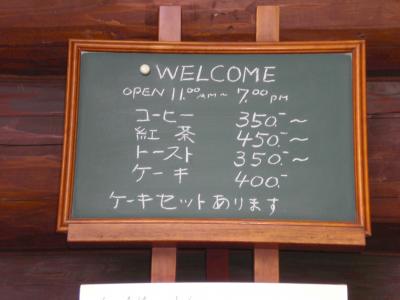 WELCOME
OPEN 11.00 AM～ 7.00 PM
コーヒー 350.-～
紅茶 450.-～
トースト 350.-～
ケーキ 400.-
ケーキセットあります